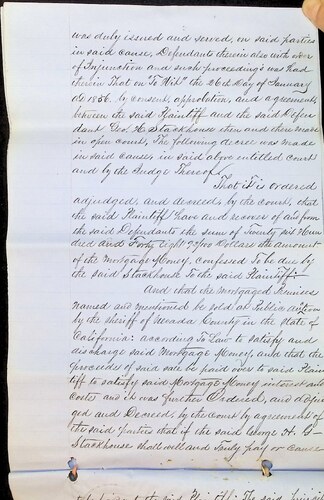 was duly issued and served, on said parties
in said cause, Defendants therein also with order
of Injunction and such proceedings was had
therein That on "To Wit" the 26th Day of January
AD 1856. by consent, approbation, and agreements
between the said Plaintiff and the said Defen
dant Geo. H. Stackhouse then and there made
in open court, The following decree was made
in said causes in said above entitled court
and by the Judge Thereof
That it is ordered
adjudged, and decreed, by the court, that
the said Plaintiff have and recover of and from
the said Defendants the sum of Twenty six Hun
dred and Forty Eight Dollars the amount
of the Mortgage Money, confessed To be due by
the said Stackhouse To the said Plaintiff.
And that the mortgaged Premises
named and mentioned be sold at Public auction
by the sheriff of Nevada County in the state of
California: according To Law to satisfy and
discharge said Mortgage Money, and that the
proceeds of said sale be paid over to said Plain
tiff to satisfy said Mortgage Money interest and
Costs and it was further Ordered, and adjud
ged and Decreed, by the court by agreement of
the said parties that if the said George H. G
Stackhouse shall well and Truly pay or cause